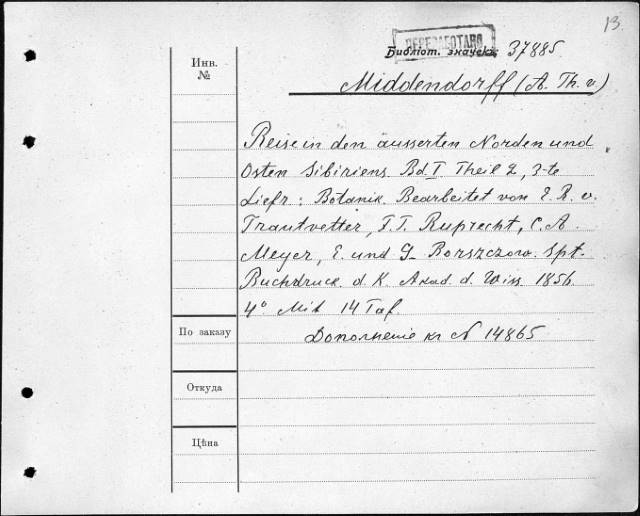 13.
ПЕРЕРАБОТАНО
Библіот. значекъ 37885
Middendorff (A. Th. v.)
Инв.
№
Reise in den äusserten Norden und
Osten Sibiriens. Bd I Theil 2, 3-te
Liefr: Botanik. Bearbeitet von E. R. v.
Trautvetter, F. T. Ruprecht, C. A.
Meyer, E. und G. Borszczow. Spt.
Buchdruck. d. K. Akad. d. Wiss. 1856.
4° Mit 14 Taf.
По заказу
Дополнение к N 14865
Откуда
Цѣна